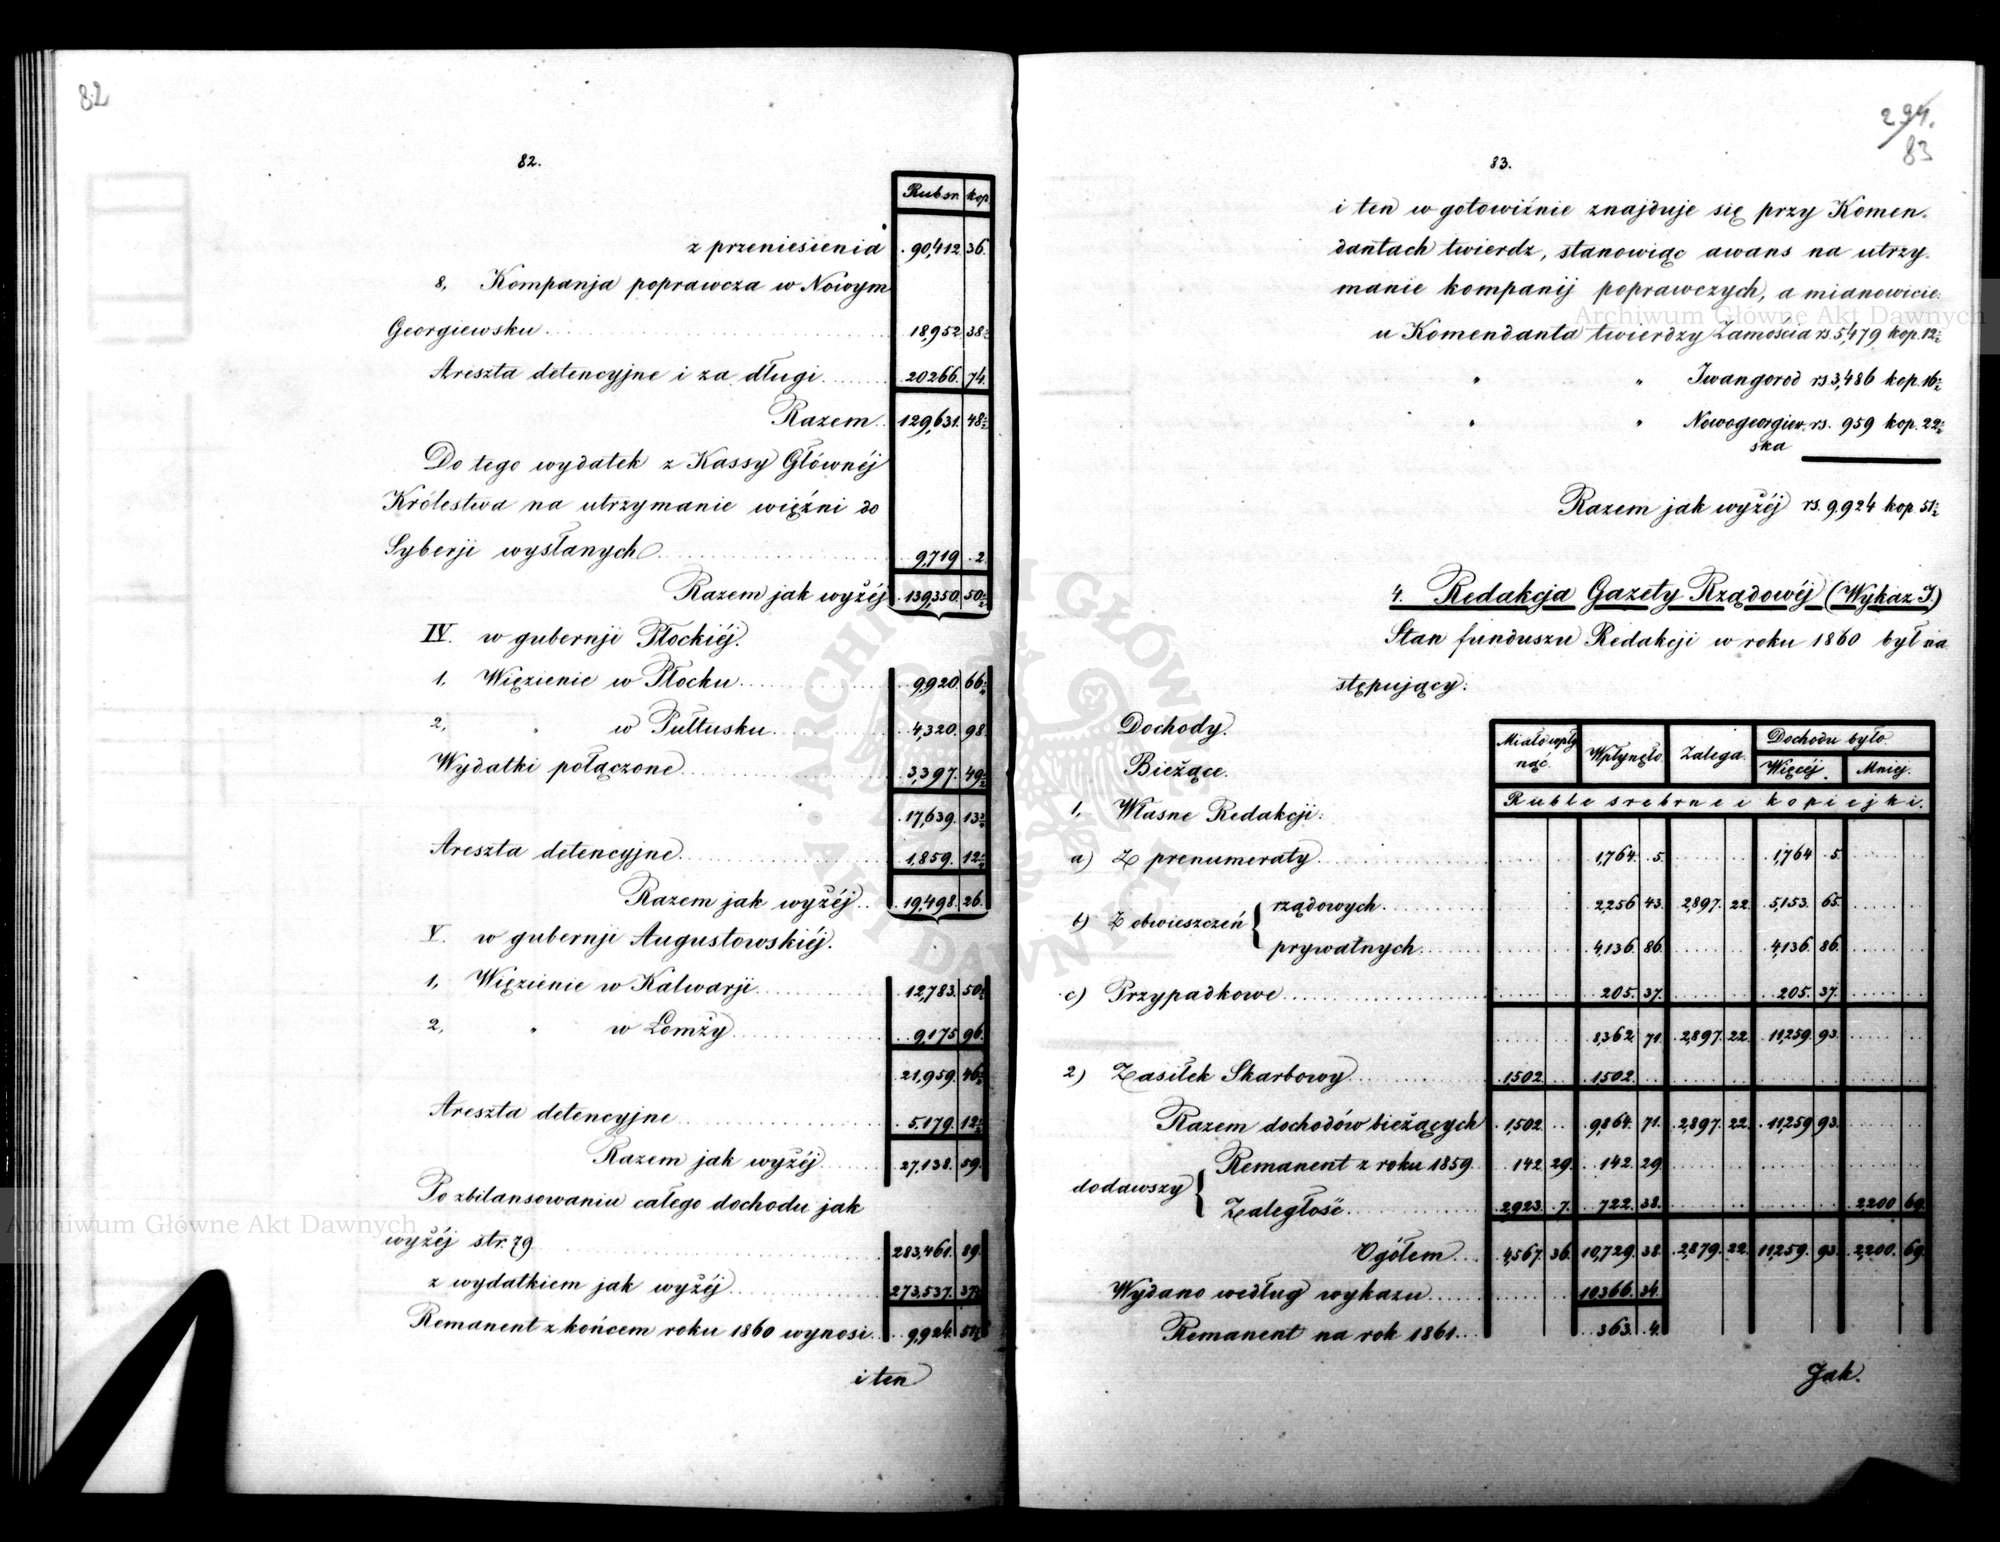 82
82.
Rub sr. kop
z przeniesienia 90,412. 36.
8, Kompanja poprawcza w Nowym
Georgiewsku 18,952. 38½
Areszta detencyjne i za długi 20266. 74.
Razem 129,631. 48½
Do tego wydatek z Kassy Głównéj
Królestwa na utrzymanie więźni do
Syberji wysłanych 9,719. 2.
Razem jak wyżéj 139,350. 50½
IV. w gubernji Płockiéj.
1, Więzienie w Płocku 9,920. 66
2, " w Pułtusku 4,320. 98.
Wydatki połączone 3,397. 49
17,639. 13
Areszta detencyjne 1,859. 12
Razem jak wyżéj 19,498. 26.
V. w gubernji Augustowskiéj.
1, Więzienie w Kalwarji 12,783. 50
2, " w Łomży 9,175 96.
21,959. 46
Areszta detencyjne 5,179. 12
Razem jak wyżéj 27,138. 59.
Po zbilansowaniu całego dochodu jak
wyżéj str. 79 283,461. 89.
z wydatkiem jak wyżéj 273,537. 37
Remanent z końcem roku 1860 wynosi 9,924. 51½
i ten
294.
83
83.
i ten w gotowiźnie znajduje się przy Komen-
dantach twierdz, stanowiąc awans na utrzy-
manie kompanij poprawczych, a mianowicie:
u Komendanta twierdzy Zamościa rs. 5,479 kop. 12½
" " Iwangorod rs 3,486 kop. 16½
" " Nowogeorgiew- rs. 959 kop. 22½
ska
Razem jak wyżéj rs. 9,924 kop. 51½
4. Redakcja Gazety Rządowéj (Wykaz I.)
Stan funduszu Redakcji w roku 1860 był na
stępujący:
Dochody. Miało wpły Wpłynęło. Zalega. Dochodu było
Bieżące. nąć. Więcéj. Mniej.
Ruble srebrne i kopiejki.
1, Własne Redakcji:
a) Z prenumeraty 1,764. 5. 1,764 5.
rządowych. 2,256 43. 2,897. 22. 5,153. 65.
b) Z obwieszczeń
prywatnych 4,136 86. 4,136. 86.
c) Przypadkowe 205. 37. 205. 37.
8,362. 71. 2,897. 22. 11,259. 93.
2) Zasiłek Skarbowy 1502 1502.
Razem dochodów bieżących 1,502. 9,864. 71. 2,897. 22. 11,259 93.
Remanent z roku 1859. 142. 29. 142. 29.
dodawszy
Zaległość 2,923. 7. 722. 38. 2,200 69.
Ogółem 4,567. 36. 10,729. 38. 2,879. 22. 11,259. 93. 2,200. 69.
Wydano według wykazu 10366. 34.
Remanent na rok 1861. 363. 4.
Jak.
Archiwum Główne Akt Dawnych
Archiwum Główne Akt Dawnych
ARCHIWUM GŁÓWNE AKT DAWNYCH